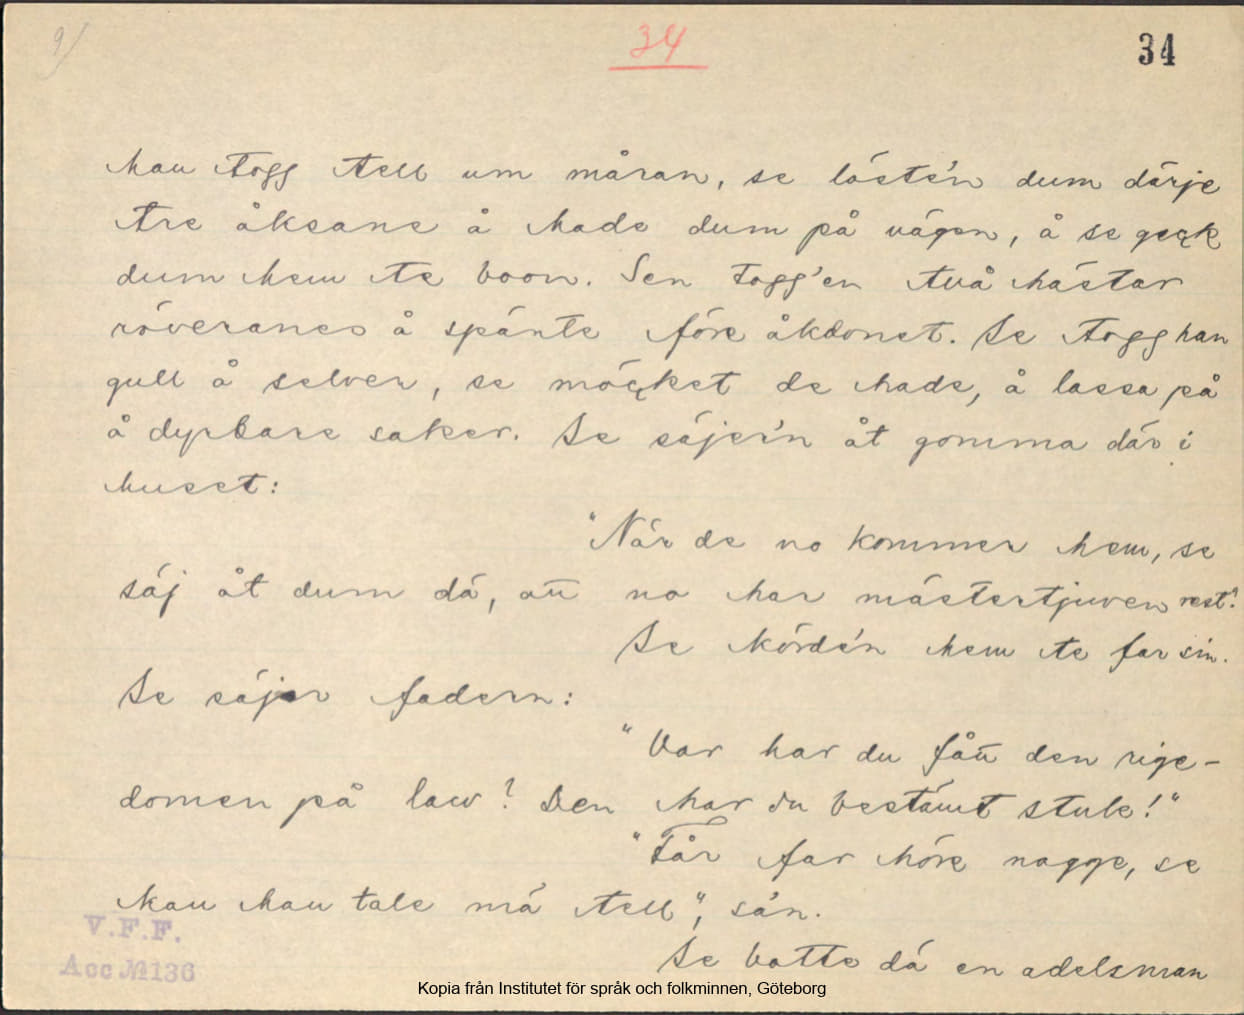 9/
34
34
han togg tell um måran, se löste'n dum därje
tre åksane å hade dum på vägen, å se geck
dum hem te boon. Sen togg'en två hästar
röveranes å spänte före åkdonet. Se togg han
gull å selver, se möcket de hade, å lassa på
å dyrbare saker. Se säjer'n åt gomma där i
huset:
"När de no kommer hem, se
säj åt dum dá, att no har mästertjuven rest."
Se körde'n hem te far sin.
Se säjer fadern:
"Var har du fått den rige-
domen på law? Den har du bestämt stule!"
"Får far höre nagge, se
kan han tale má tell", sá'n.
Se botte dá en adelsman
V.F.F.
Acc № 136
Kopia från Institutet för språk och folkminnen, Göteborg